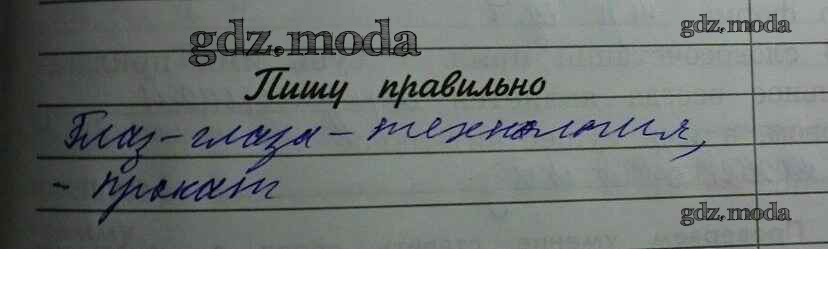 gdz.moda
gdz.moda
Пишу правильно
Глаз - глаза - технология,
- прокат
gdz.moda